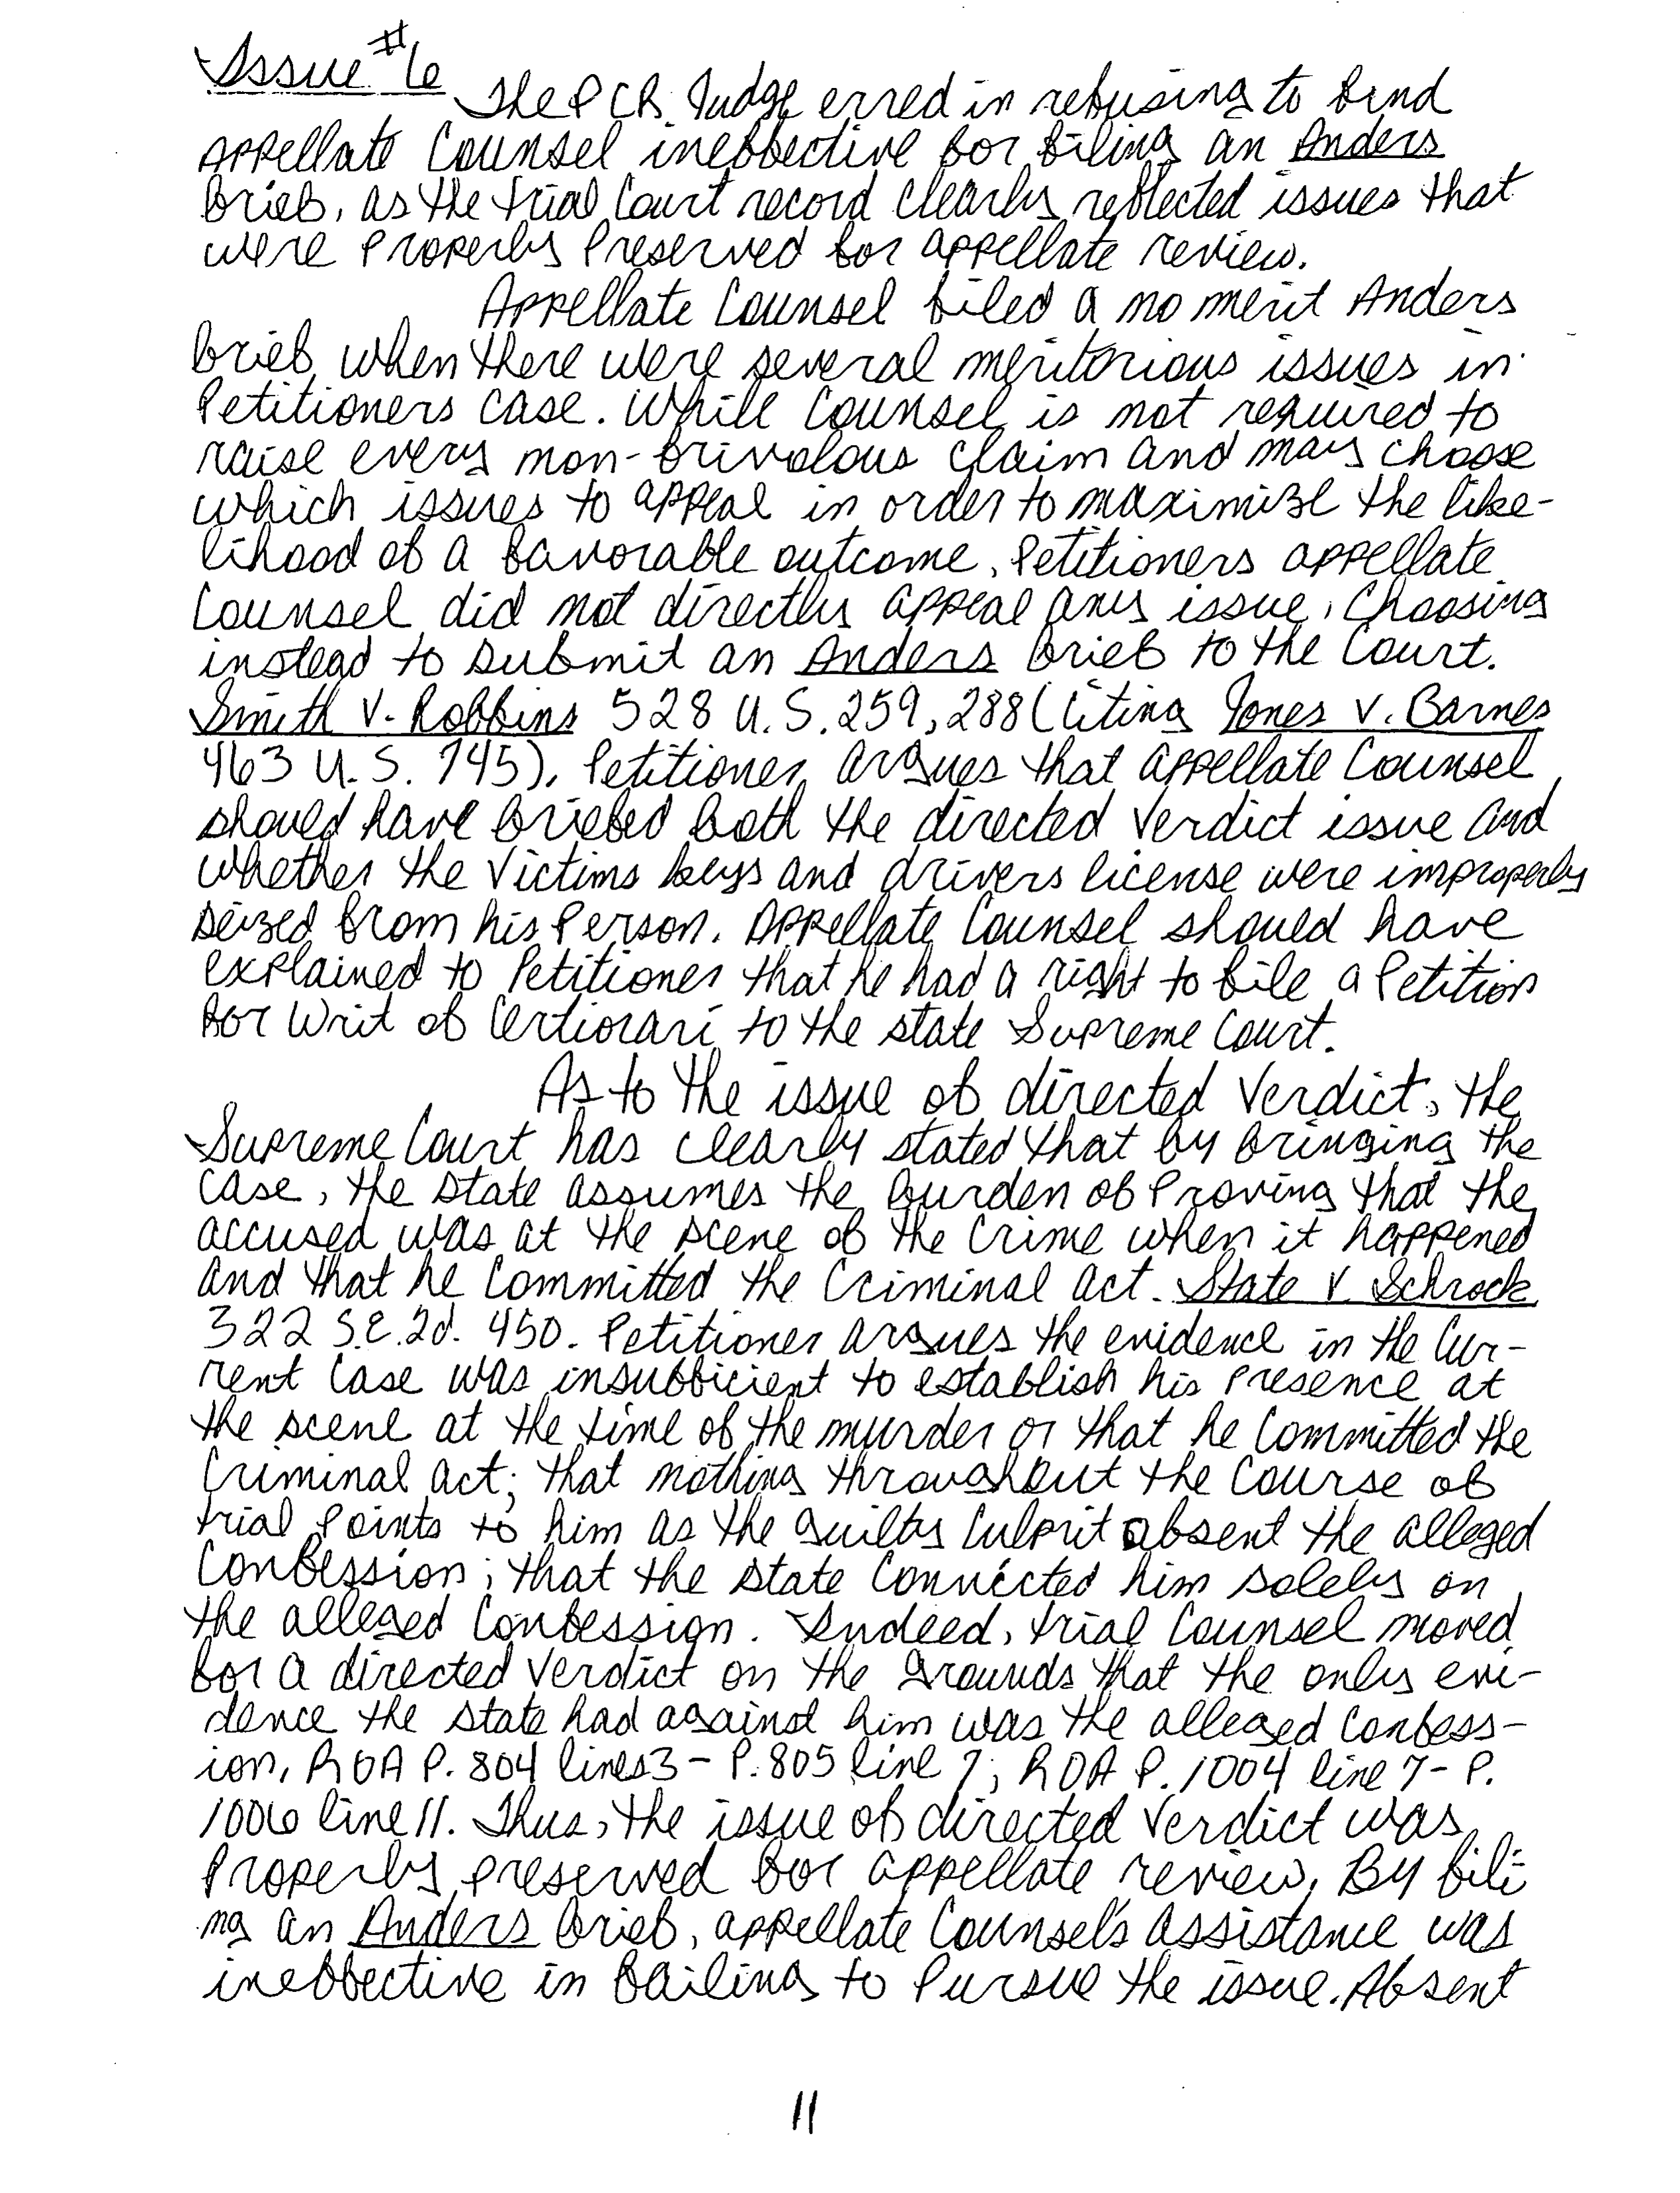 Issue #6
The PCR Judge erred in refusing to find
Appellate Counsel ineffective for filing an Anders
brief, as the trial Court record clearly reflected issues that
were properly preserved for appellate review.
Appellate Counsel filed a no merit Anders
brief when there were several meritorious issues in
Petitioners case. While Counsel is not required to
raise every non-frivolous claim and may choose
which issues to appeal in order to maximize the like-
lihood of a favorable outcome, Petitioners appellate
Counsel did not directly appeal any issue, Choosing
instead to submit an Anders brief to the Court.
Smith v. Robbins 528 U.S. 259, 288 (Citing Jones v. Barnes
463 U.S. 745). Petitioner argues that appellate Counsel
should have briefed both the directed Verdict issue and
whether the Victims keys and drivers license were improperly
seized from his Person. Appellate Counsel should have
explained to Petitioner that he had a right to file a Petition
for Writ of Certiorari to the state Supreme Court.
As to the issue of directed Verdict, the
Supreme Court has clearly stated that by bringing the
Case, the state assumes the burden of Proving that the
accused was at the scene of the Crime when it happened
and that he Committed the Criminal act. State v Schrock
322 S.E.2d. 450. Petitioner argues the evidence in the Cur-
rent Case was insufficient to establish his presence at
the scene at the time of the murder or that he Committed the
Criminal act; that nothing throughout the Course of
trial Points to him as the guilty Culprit absent the alleged
Confession; that the state Connected him solely on
the alleged Confession. Indeed, trial Counsel moved
for a directed Verdict on the grounds that the only evi-
dence the state had against him was the alleged Confess-
ion, ROA P. 804 lines3-P.805 line 7; ROA P. 1004 line 7-P.
1006 line 11. Thus, the issue of directed Verdict was
Properly preserved for appellate review. By fili-
ng an Anders brief, appellate Counsel's assistance was
ineffective in failing to Pursue the issue. Absent
11